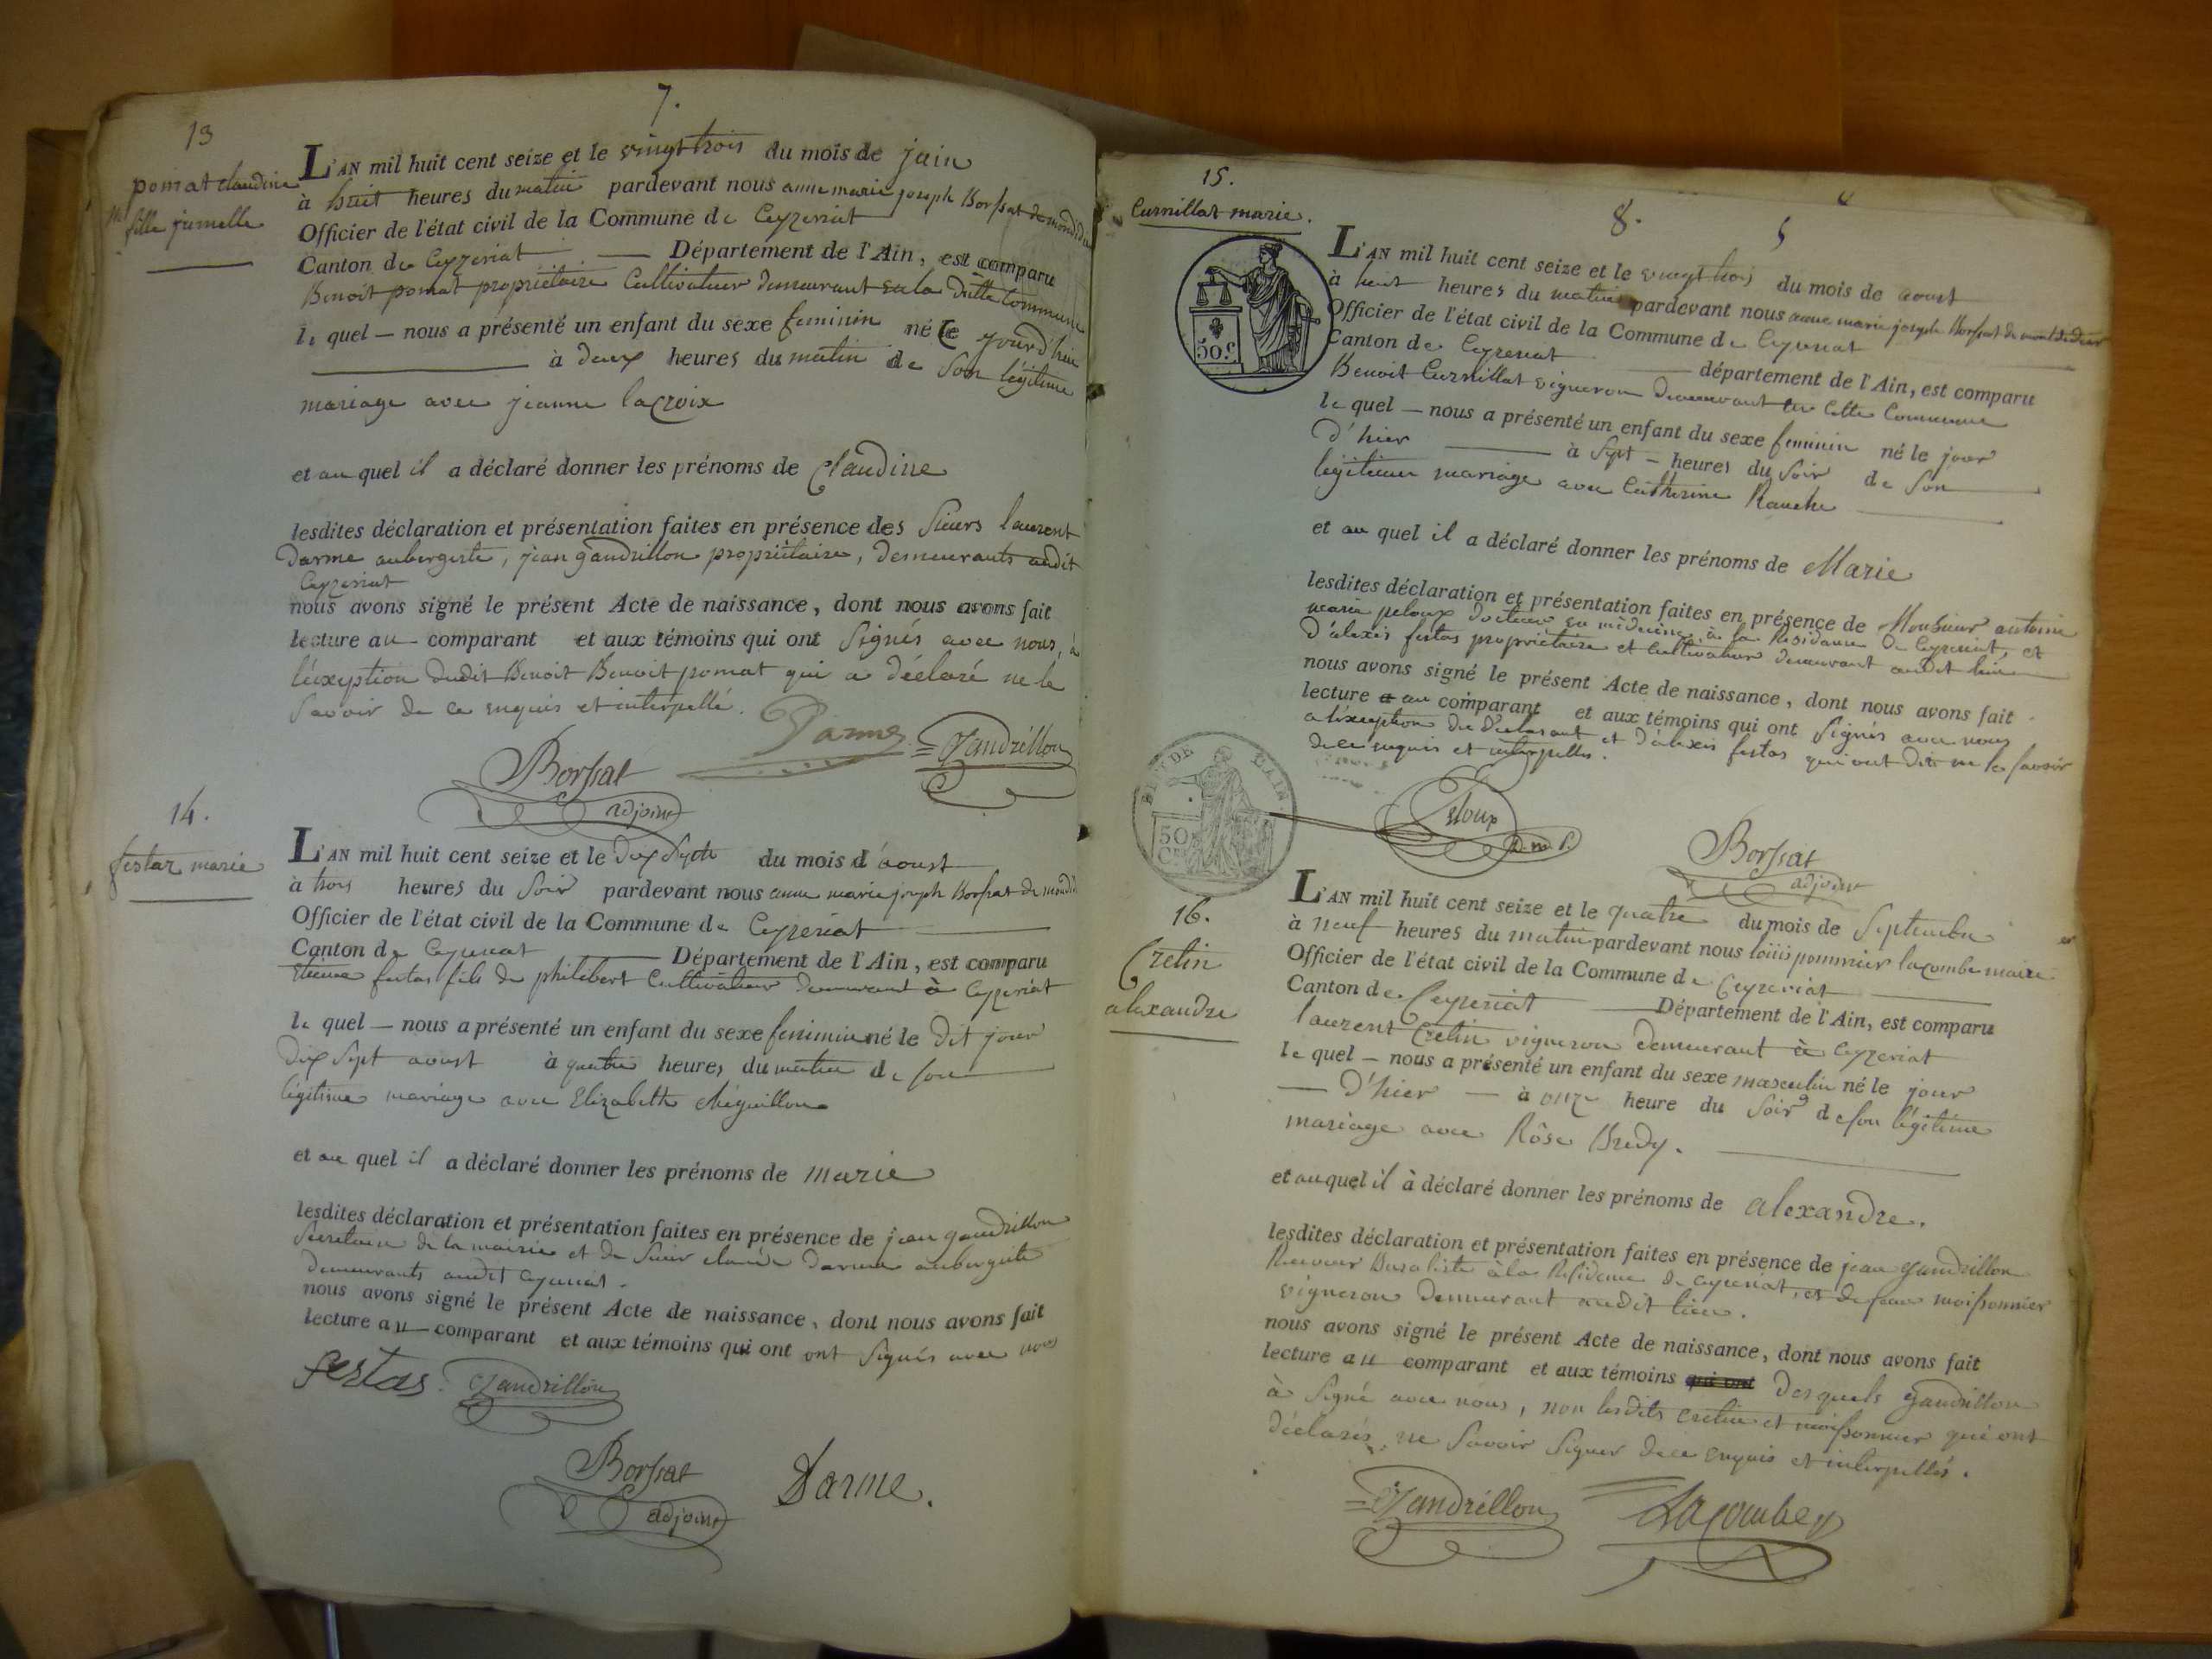 7.
13
pomat claudine
fille jumelle
L'AN mil huit cent seize et le vingt trois du mois de juin
à huit heures du matin pardevant nous anne marie joseph Borssat de mondidier
Officier de l'état civil de la Commune de Ceyzeriat
Canton de Ceyzeriat Département de l'Ain, est comparu
Benoit pomat propriétaire Cultivateur demeurant en la ditte Commune
le quel — nous a présenté un enfant du sexe feminin né le jourd'hui
à deux heures du matin de son légitime
mariage avec jeanne lacroix
et au quel il a déclaré donner les prénoms de Claudine
lesdites déclaration et présentation faites en présence des sieurs laurent
Darme aubergiste, jean gandrillon propriétaire, demeurants audit
Ceyzeriat
nous avons signé le présent Acte de naissance, dont nous avons fait
lecture au comparant et aux témoins qui ont signés avec nous, à
l'éxception dudit Benoit Benoit pomat qui a déclaré ne le
savoir de ce enquis et interpellé.
Darme
Gandrillon
Borssat
adjoint
14.
festaz marie
L'AN mil huit cent seize et le dix septe du mois d'aoust
à trois heures du soir pardevant nous anne marie joseph Borssat de mondid
Officier de l'état civil de la Commune de Ceyzeriat
Canton de Ceyzeriat Département de l'Ain, est comparu
Etienne festas fils de philibert Cultivateur demeurant à Ceyzeriat
le quel — nous a présenté un enfant du sexe feminin né le dit jour
dix sept aoust à quatre heures du matin de son
légitime mariage avec Elizabeth Meguillon
et au quel il a déclaré donner les prénoms de marie
lesdites déclaration et présentation faites en présence de jean gandrillon
Secretaire de la mairie et de sieur claude Darme aubergiste
demeurants audit Ceyzeriat.
nous avons signé le présent Acte de naissance, dont nous avons fait
lecture au comparant et aux témoins qui ont ont signés avec nous
festas. Gandrillon
Borssat
adjoint
Darme.
15.
Curnillat marie.
8.
5
50 c.
L'AN mil huit cent seize et le vingt trois du mois de aoust
à huit heures du matin pardevant nous anne marie joseph Borssat de mondidier
Officier de l'état civil de la Commune de Ceyzeriat
Canton de Ceyzeriat département de l'Ain, est comparu
Benoit Curnillat vigneron demeurant en cette Commune
le quel — nous a présenté un enfant du sexe feminin né le jour
d'hier à sept — heures du soir de son
légitime mariage avec Catherine Ranche
et au quel il a déclaré donner les prénoms de Marie
lesdites déclaration et présentation faites en présence de Monsieur antoine
marie peloux docteur en médecine, à la Residance de Ceyzeriat, et
d'alexis festas propriétaire et Cultivateur demeurant audit lieu
nous avons signé le présent Acte de naissance, dont nous avons fait
lecture au comparant et aux témoins qui ont signés avec nous
a l'exception du déclarant et d'alexis festas qui ont dit ne le savoir
de ce enquis et interpellés.
DEPT DE L'AIN
50 Cs
Peloux
D. m. P.
Borssat
adjoint
16.
Cretin
alexandre
L'AN mil huit cent seize et le quatre du mois de Septembre
à neuf heures du matin pardevant nous loüis pommier lacombe maire
Officier de l'état civil de la Commune de Ceyzeriat
Canton de Ceyzeriat Département de l'Ain, est comparu
laurent Cretin vigneron demeurant à Ceyzeriat
le quel — nous a présenté un enfant du sexe masculin né le jour
— d'hier — à onze heure du soir de son légitime
mariage avec Rôse Bredy.
et au quel il à déclaré donner les prénoms de alexandre.
lesdites déclaration et présentation faites en présence de jean gandrillon
Receveur Buraliste à la Residence de Ceyzeriat, et de jean moissonnier
vigneron demeurant audit lieu.
nous avons signé le présent Acte de naissance, dont nous avons fait
lecture au comparant et aux témoins qui ont desquels gandrillon
à signé avec nous, non lesdits cretin et moissonnier qui ont
déclarés ne savoir signer de ce enquis et interpellés.
Gandrillon
Lacombe